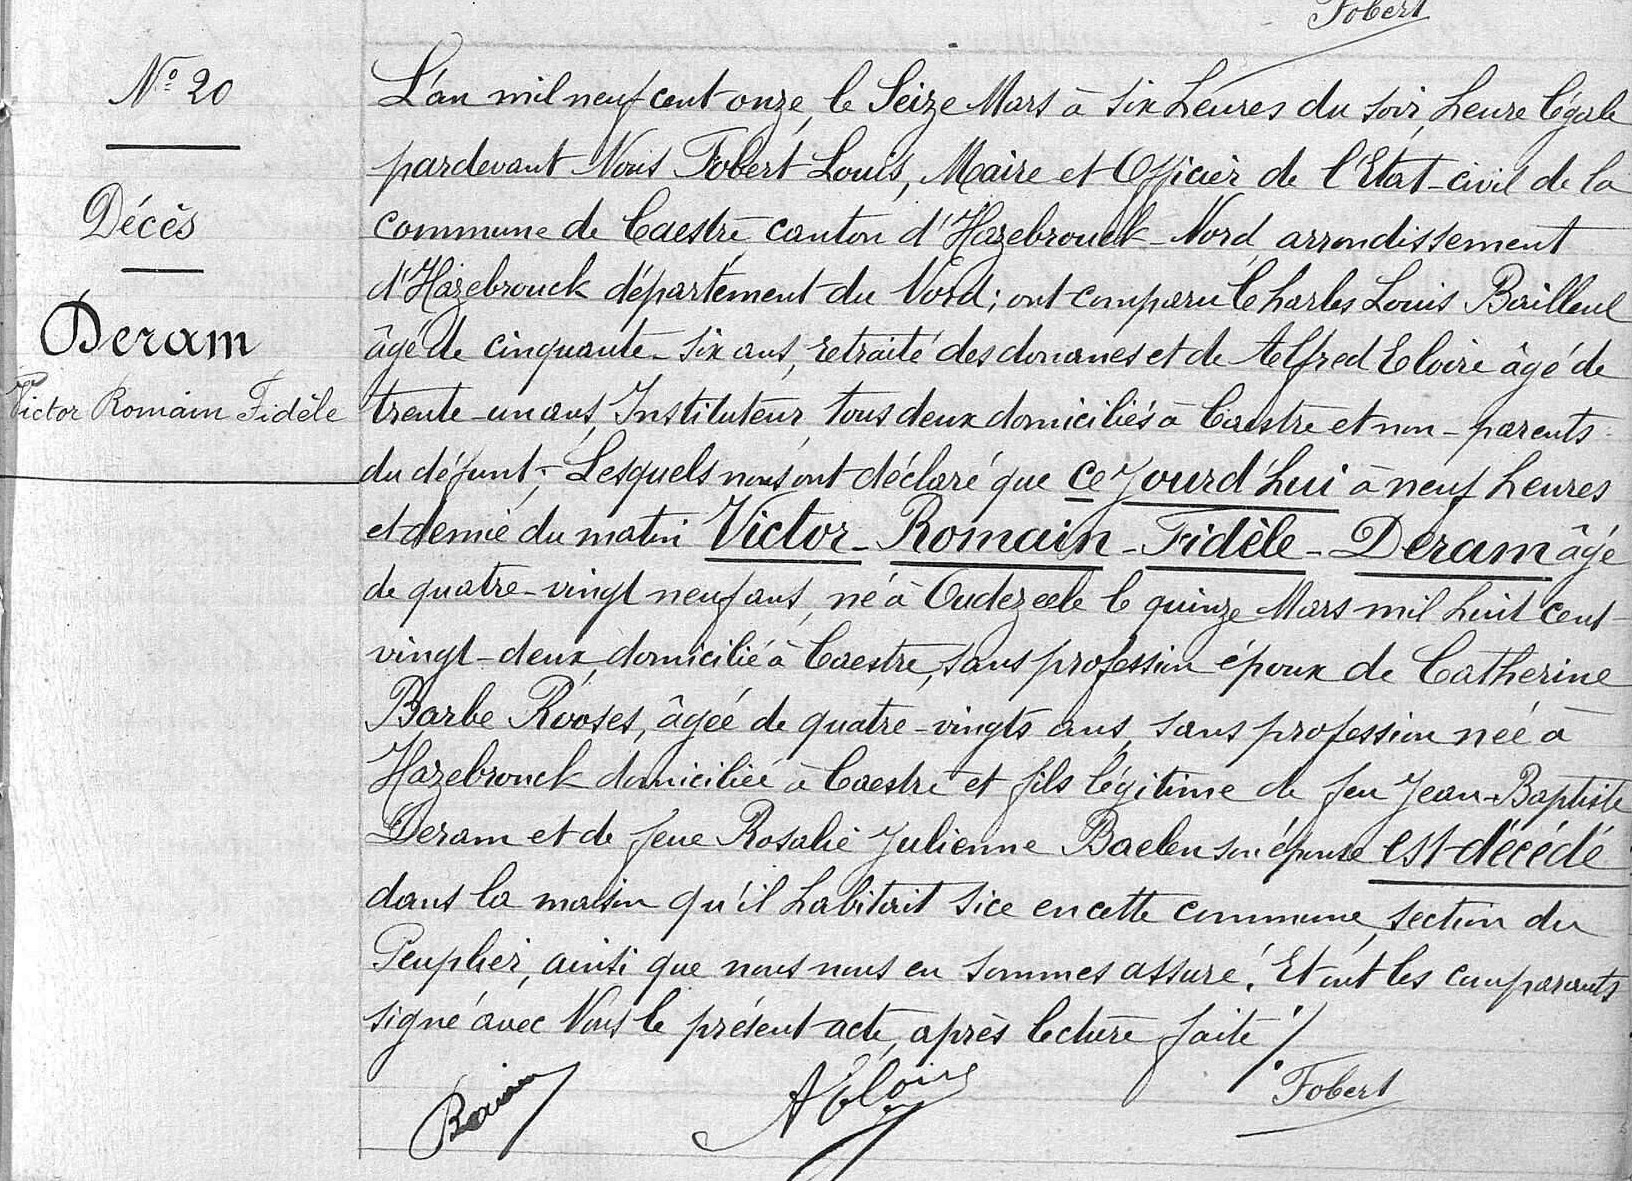 Fobert
N° 20
Décès
Deram
Victor Romain Fidèle
L'an mil neuf cent onze, le Seize Mars à six heures du soir, heure légale
pardevant Nous Fobert Louis, Maire et Officier de l'Etat-civil de la
commune de Caestre, canton d'Hazebrouck-Nord, arrondissement
d'Hazebrouck département du Nord; ont comparu Charles Louis Bailleul
âgé de cinquante-six ans, retraité des douanes et de Alfred Eloire âgé de
trente-un ans, Instituteur, tous deux domiciliés à Caestre et non-parents
du défunt;- Lesquels nous ont déclaré que ce jourd'hui à neuf heures
et demie du matin Victor-Romain-Fidèle-Deram âgé
de quatre-vingt neuf ans, né à Oudezeele le quinze Mars mil huit cent-
vingt-deux, domicilié à Caestre, sans profession époux de Catherine
Barbe Rooses, âgée de quatre-vingts ans, sans profession née à
Hazebrouck domiciliée à Caestre et fils légitime de feu Jean-Baptiste
Deram et de feue Rosalie Julienne Baelen son épouse est-décédé
dans la maison qu'il habitait sice en cette commune, section du
Peuplier, ainsi que nous nous en sommes assuré. Et ont les comparants
signé avec Nous le présent acte, après lecture faite ./.
AEloire
Fobert